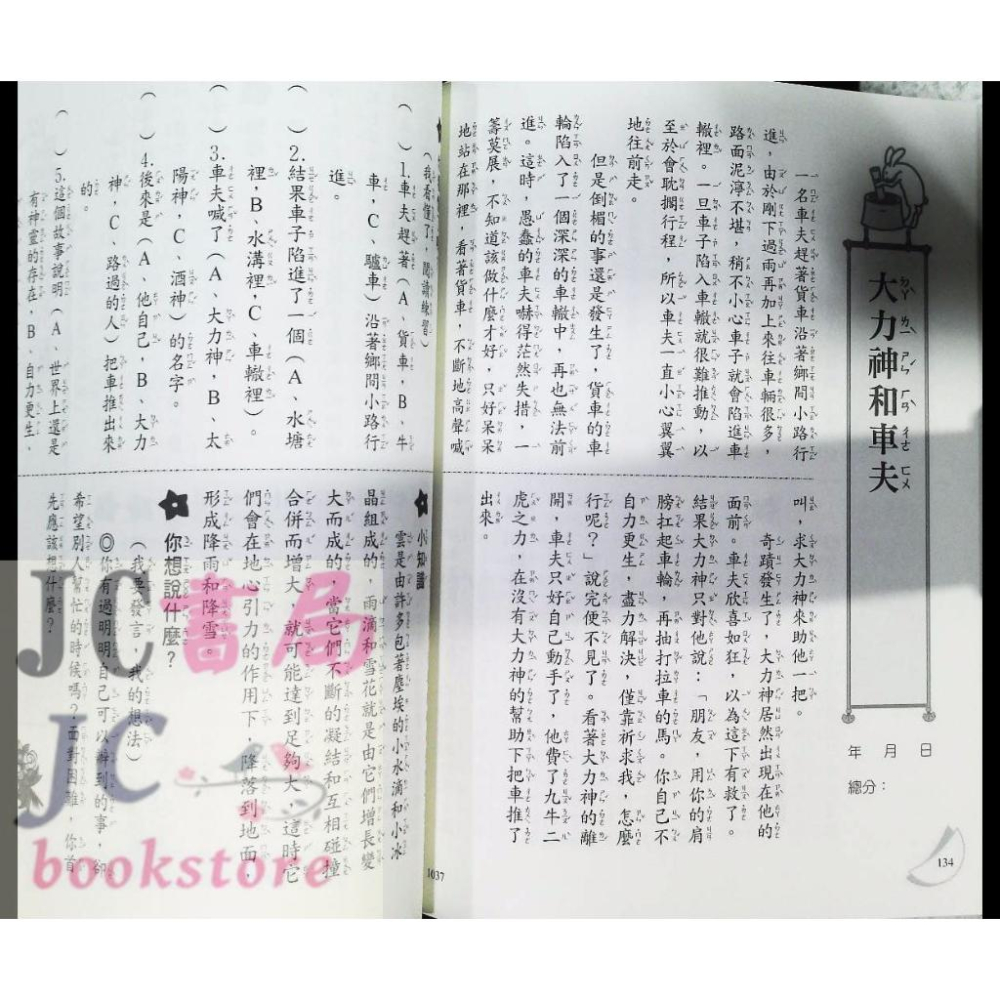 大力神和車夫
年 月 日
總分：
一名車夫趕著貨車沿著鄉間小路行
進，由於剛下過雨再加上來往車輛很多，
路面泥濘不堪，稍不小心車子就會陷進車
轍裡。一旦車子陷入車轍就很難推動，以
至於會耽擱行程，所以車夫一直小心翼翼
地往前走。
但是倒楣的事還是發生了，貨車的車
輪陷入了一個深深的車轍中，再也無法前
進。這時，愚蠢的車夫嚇得茫然失措，一
籌莫展，不知道該做什麼才好，只好呆呆
地站在那裡，看著貨車，不斷地高聲喊
叫，求大力神來助他一把。
奇蹟發生了，大力神居然出現在他的
面前。車夫欣喜如狂，以為這下有救了。
結果大力神只對他說：「朋友，用你的肩
膀扛起車輪，再抽打拉車的馬。你自己不
自力更生，盡力解決，僅靠祈求我，怎麼
行呢？」說完便不見了。看著大力神的離
開，車夫只好自己動手了，他費了九牛二
虎之力，在沒有大力神的幫助下把車推了
出來。
134
（我看懂了，閱讀練習）
（ ）1.車夫趕著（A、貨車，B、牛
車，C、驢車）沿著鄉間小路行
進。
（ ）2.結果車子陷進了一個（A、水塘
裡，B、水溝裡，C、車轍裡）。
（ ）3.車夫喊了（A、大力神，B、太
陽神，C、酒神）的名字。
（ ）4.後來是（A、他自己，B、大力
神，C、路過的人）把車推出來
的。
（ ）5.這個故事說明（A、世界上還是
有神靈的存在，B、自力更生，
小知識
雲是由許多包著塵埃的小水滴和小冰
晶組成的，雨滴和雪花就是由它們增長變
大而成的，當它們不斷的凝結和互相碰撞
合併而增大，就可能達到足夠大，這時它
們會在地心引力的作用下，降落到地面，
形成降雨和降雪。
你想說什麼？
（我要發言，我的想法）
◎你有過明明自己可以辦到的事，卻
希望別人幫忙的時候嗎？面對困難，你首
先應該想什麼？
1037
JC書局
JC
bookstore